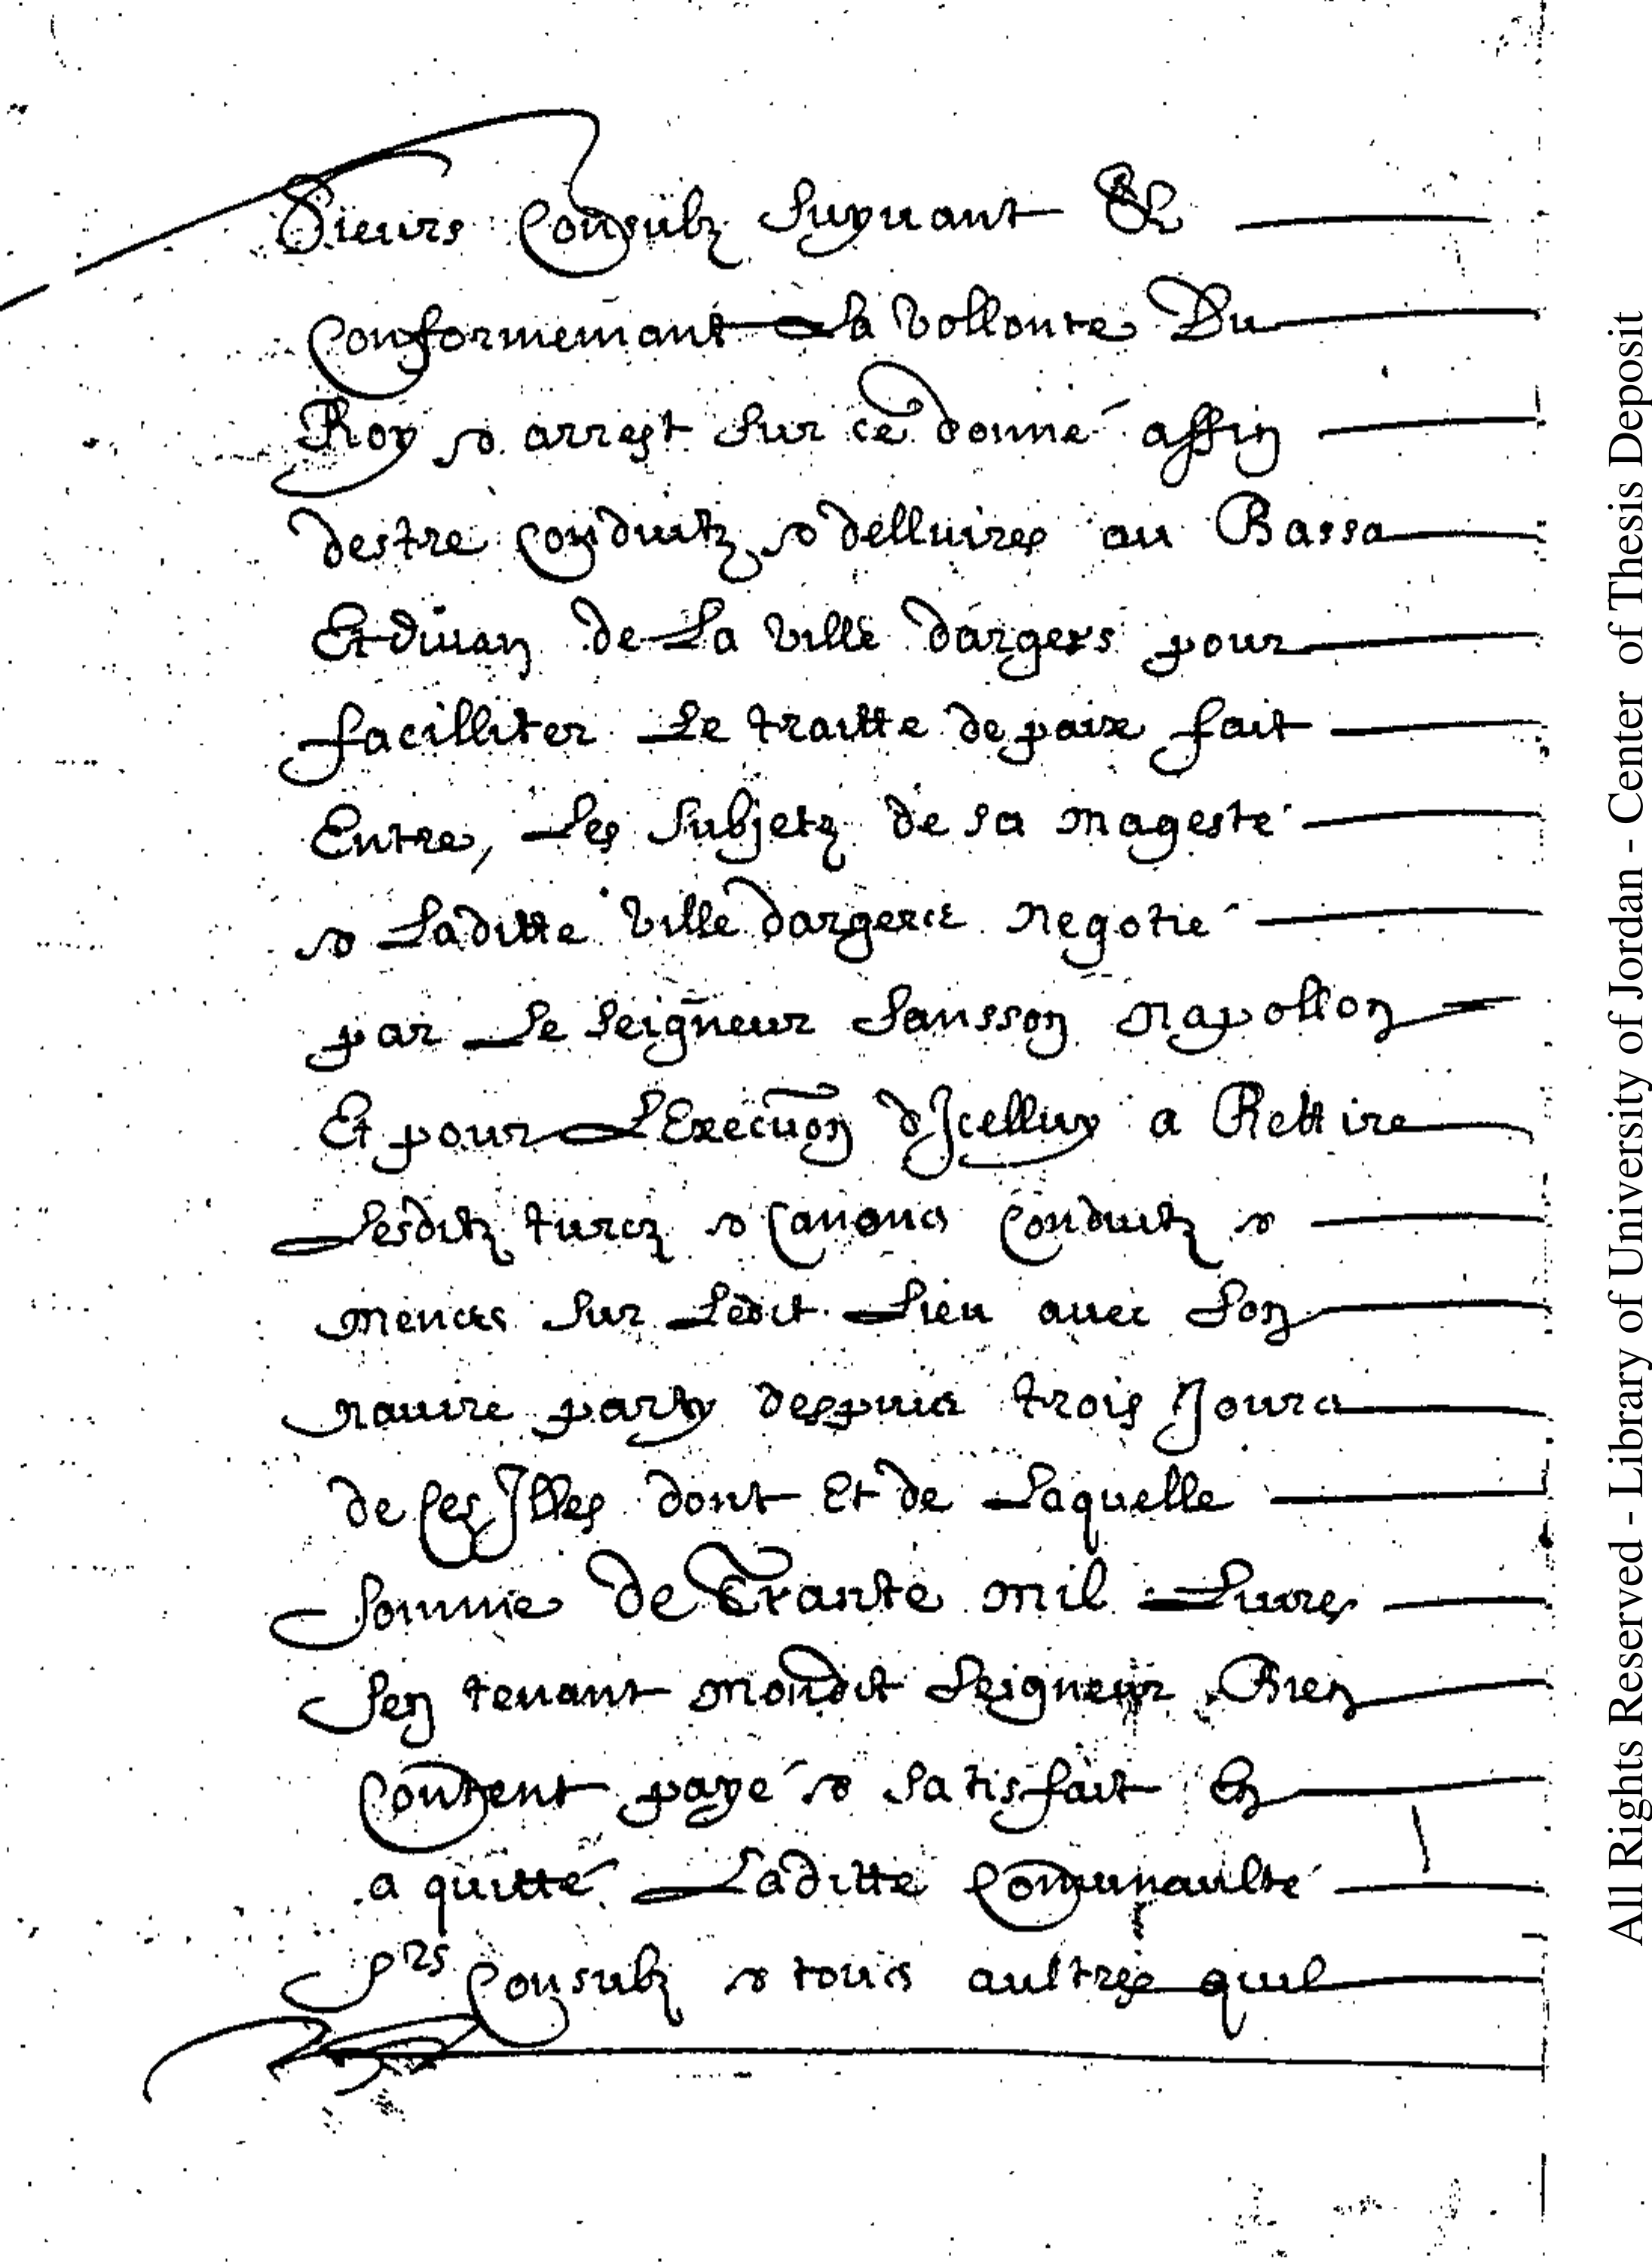 Sieurs Consulz suyvant Et
Conformemant a la vollonte Du
Roy & arrest sur ce donné affin
destre conduitz & dellivres au Bassa
Et divan de La ville dargers pour
facilliter Le traitte de paix fait
Entre, Les subjetz de sa mageste
& Laditte ville dargers negotié
par Le seigneur sansson napollon
Et pour L'Execuon dJcelluy a Rettire
Lesditz turcz & canons conduitz &
menes sur Ledit Lieu avec son
navire party despuis trois Jours
de Ces Jlles dont Et de Laquelle
somme de Trante mil Livres
sen tenant mondit seigneur Bien
Contant payé & satisfait En
a quitté Laditte Communaulté
srs Consulz & tous aultres quil
All Rights Reserved - Library of University of Jordan - Center of Thesis Deposit